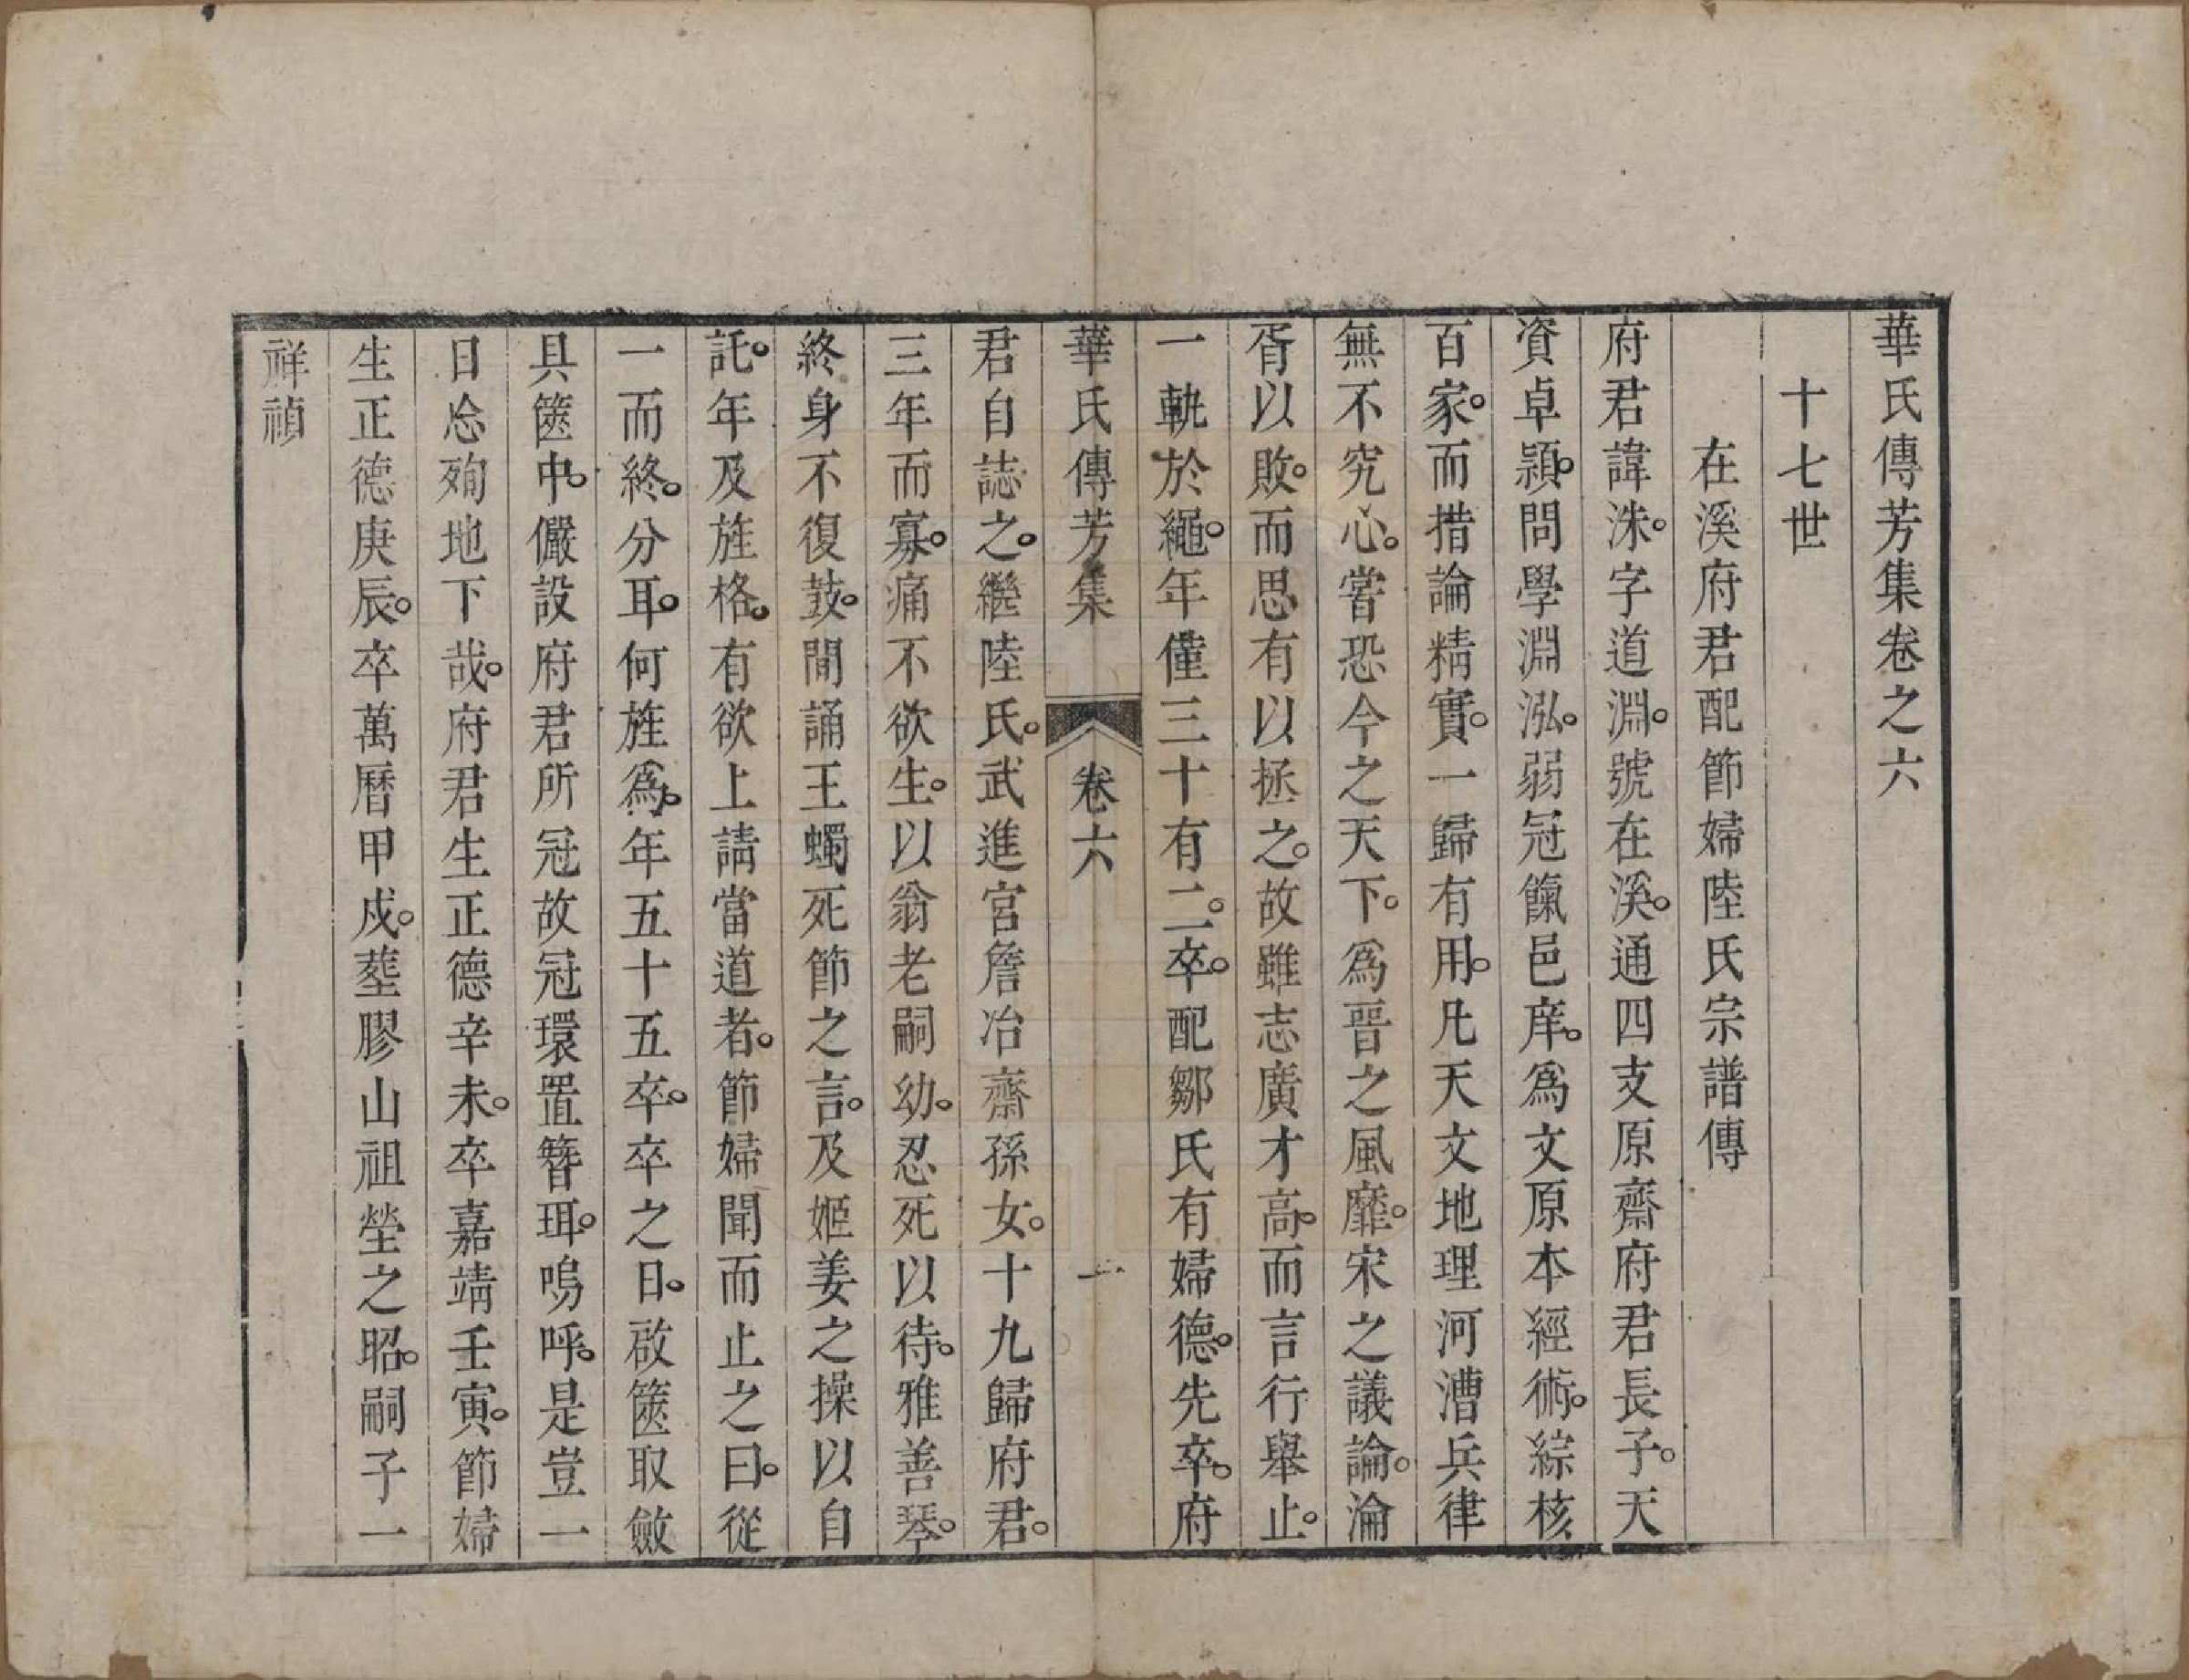 華氏傳芳集卷之六
十七世
在溪府君配節婦陸氏宗譜傳
府君諱洙。字道淵。號在溪。通四支原齋府君長子。天
資卓穎。問學淵泓。弱冠餼邑庠。爲文原本經術。綜核
百家。而措論精實。一歸有用。凡天文地理河漕兵律
無不究心。嘗恐今之天下。爲晉之風靡。宋之議論。淪
胥以敗。而思有以拯之。故雖志廣才高。而言行舉止。
一軌於繩。年僅三十有二。卒。配鄒氏有婦德。先卒。府
華氏傳芳集 卷六 一
君自誌之。繼陸氏。武進宮詹冶齋孫女。十九歸府君。
三年而寡。痛不欲生。以翁老嗣幼。忍死以待。雅善琴。
終身不復鼓。間誦王蠋死節之言。及姬姜之操以自
託。年及旌格。有欲上請當道者。節婦聞而止之曰。從
一而終。分耳。何旌爲。年五十五卒。卒之日。啟篋取斂
具篋中。儼設府君所冠故冠環置簪珥。嗚呼。是豈一
日忘殉地下哉。府君生正德辛未。卒嘉靖壬寅。節婦
生正德庚辰。卒萬曆甲戌。塟膠山祖塋之昭。嗣子一
祥禎